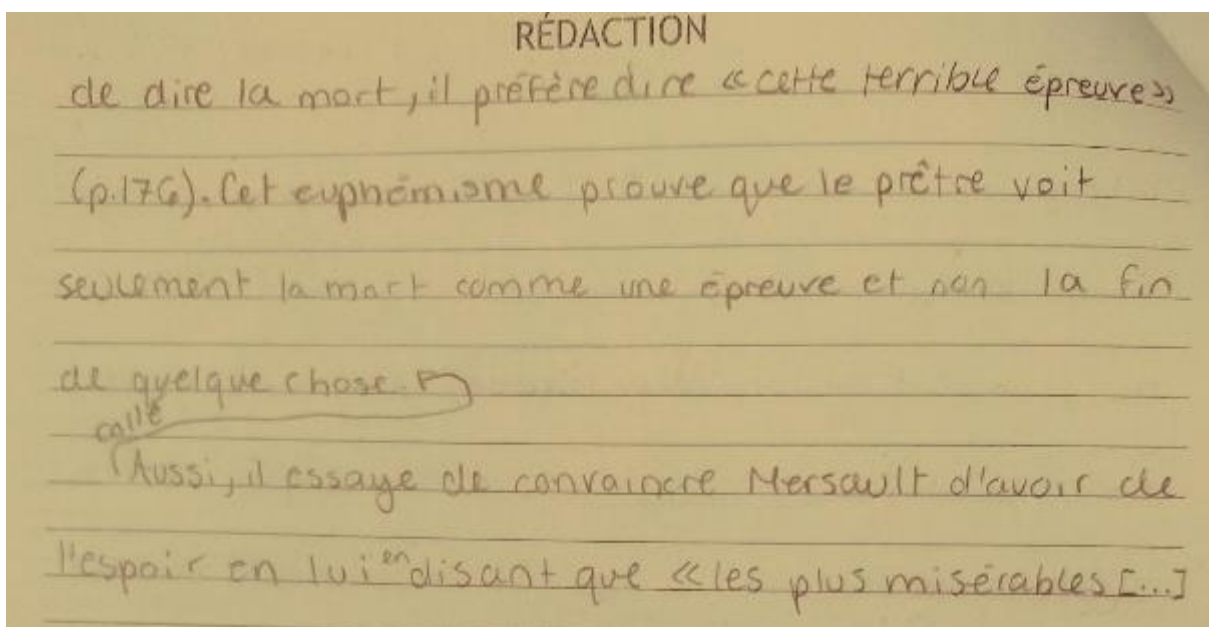 RÉDACTION
de dire la mort, il préfère dire « cette terrible épreuve »
(p.176). Cet euphémisme prouve que le prêtre voit
seulement la mort comme une épreuve et non la fin
de quelque chose.
collé
Aussi, il essaye de convaincre Mersault d'avoir de
l'espoir en lui en disant que « les plus misérables [...]